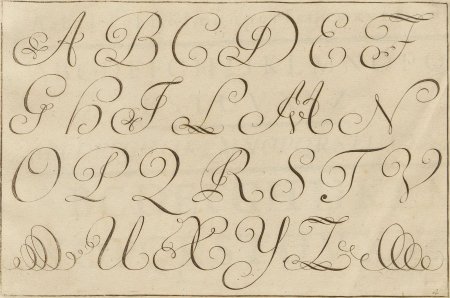 A B C D E F
G h I L M N
O P Q R S T V
U X Y Z